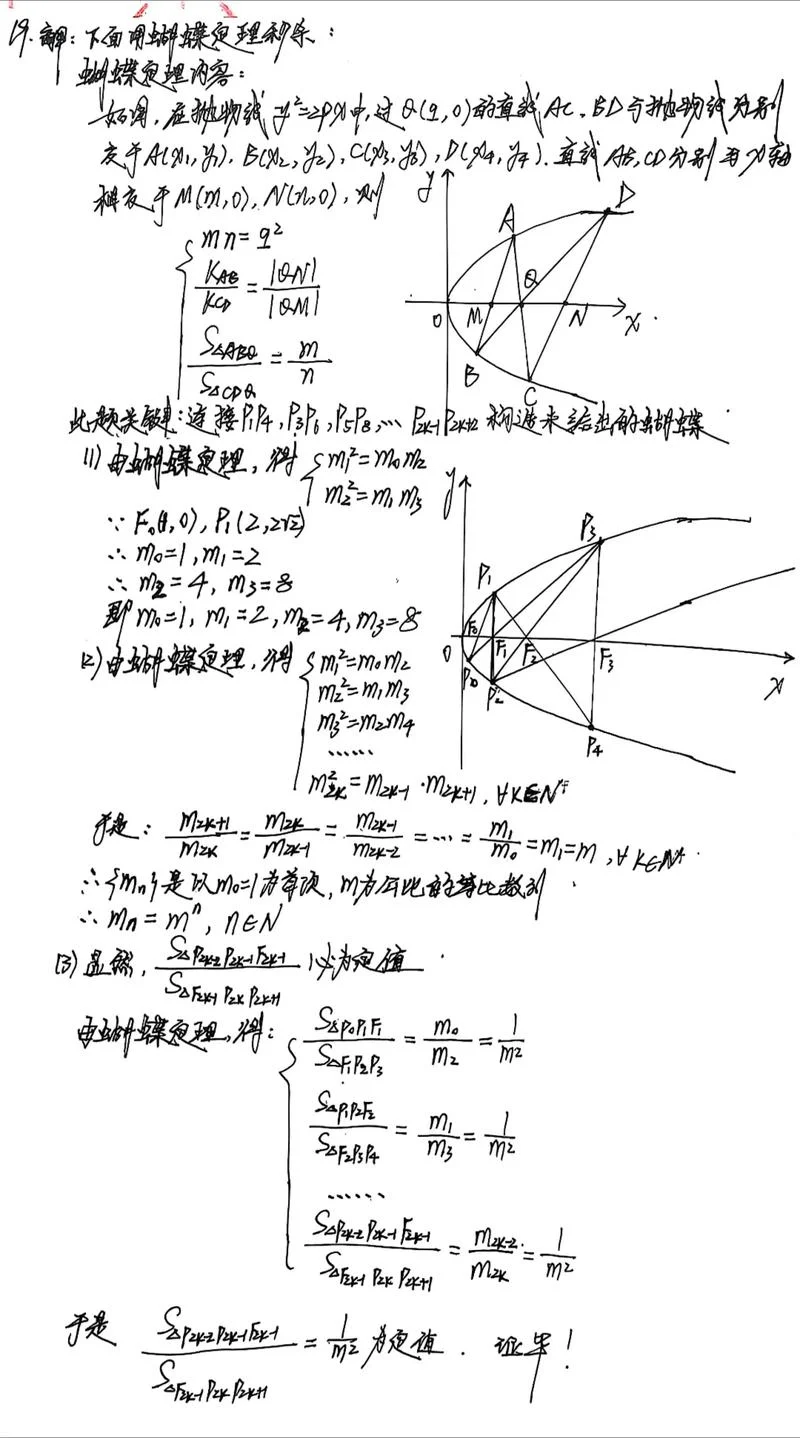 19. 解：下面用蝴蝶定理秒杀：
蝴蝶定理内容：
如图，在抛物线 y²=2px中，过 Q(q,0)的直线 AC，BD与抛物线分别
交于A(x₁,y₁)，B(x₂,y₂)，C(x₃,y₃)，D(x₄,y₄)．直线 AB,CD分别与x轴
相交于M(m,0)，N(n,0)，则
mn=q²
K_AB/K_CD = |QN|/|QM|
S△ABQ/S△CDQ = m/n
y A D O M Q N x B C
此题关键：连接P₁P₄,P₃P₆,P₅P₈,… P₂ₖ₋₁P₂ₖ₊₂ 构造未给出的蝴蝶
(1) 由蝴蝶定理，得 { m₁²=m₀m₂
m₂²=m₁m₃
∵ F₀(1,0), P₁(2,2√2)
∴ m₀=1,m₁=2
∴ m₂=4, m₃=8
即 m₀=1, m₁=2, m₂=4, m₃=8
y P₃ P₁ F₀ O F₁ F₂ F₃ x P₀ P₂ P₄
(2) 由蝴蝶定理，得 { m₁²=m₀m₂
m₂²=m₁m₃
m₃²=m₂m₄
……
m₂ₖ²=m₂ₖ₋₁·m₂ₖ₊₁, ∀k∈N⁺
于是：m₂ₖ₊₁/m₂ₖ = m₂ₖ/m₂ₖ₋₁ = m₂ₖ₋₁/m₂ₖ₋₂ = … = m₁/m₀ = m₁=m, ∀k∈N⁺.
∴ {mₙ}是以m₀=1为首项，m为公比的等比数列
∴ mₙ = mⁿ, n∈N
(3) 显然，S△P₂ₖ₋₂P₂ₖ₋₁F₂ₖ₋₁/S△F₂ₖ₋₁P₂ₖP₂ₖ₊₁ 必为定值
由蝴蝶定理，得：{ S△P₀P₁F₁/S△F₁P₂P₃ = m₀/m₂ = 1/m²
S△P₁P₂F₂/S△F₂P₃P₄ = m₁/m₃ = 1/m²
……
S△P₂ₖ₋₂P₂ₖ₋₁F₂ₖ₋₁/S△F₂ₖ₋₁P₂ₖP₂ₖ₊₁ = m₂ₖ₋₂/m₂ₖ = 1/m²
于是 S△P₂ₖ₋₂P₂ₖ₋₁F₂ₖ₋₁/S△F₂ₖ₋₁P₂ₖP₂ₖ₊₁ = 1/m² 为定值．证毕！